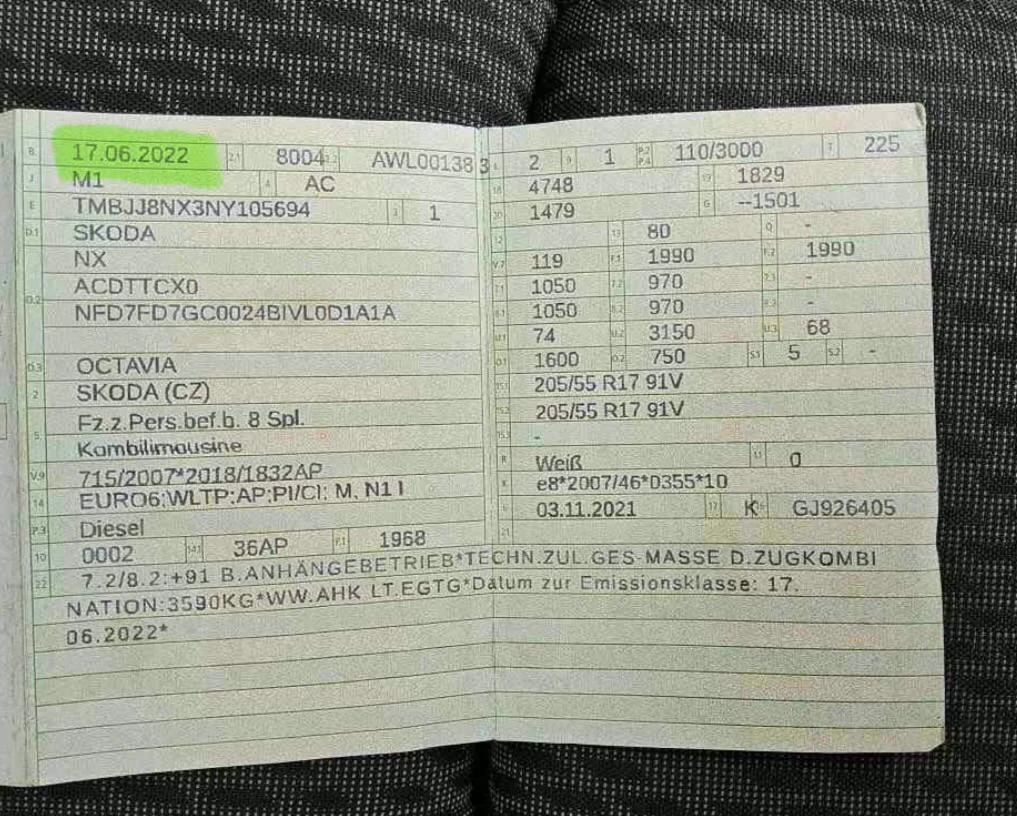 B 17.06.2022 2.1 8004 2.2 AWL00138 3
J M1 4 AC
E TMBJJ8NX3NY105694 3 1
D.1 SKODA
NX
D.2 ACDTTCX0
NFD7FD7GC0024BIVL0D1A1A
D.3 OCTAVIA
2 SKODA (CZ)
5 Fz.z.Pers.bef.b. 8 Spl.
Kombilimousine
V.9 715/2007*2018/1832AP
14 EURO6;WLTP;AP;PI/CI; M, N1 I
P.3 Diesel
10 0002 14.1 36AP P.1 1968
L 2 9 1 P.2 P.4 110/3000 T 225
18 4748 19 1829
20 1479 G --1501
12 13 80 Q -
V.7 119 F.1 1990 F.2 1990
7.1 1050 7.2 970 7.3 -
8.1 1050 8.2 970 8.3 -
U.1 74 U.2 3150 U.3 68
O.1 1600 O.2 750 S.1 5 S.2 -
15.1 205/55 R17 91V
15.2 205/55 R17 91V
15.3 -
R Weiß 11 0
K e8*2007/46*0355*10
6 03.11.2021 17 K 16 GJ926405
21
22 7.2/8.2:+91 B.ANHÄNGEBETRIEB*TECHN.ZUL.GES-MASSE D.ZUGKOMBI
NATION:3590KG*WW.AHK LT.EGTG*Datum zur Emissionsklasse: 17.
06.2022*